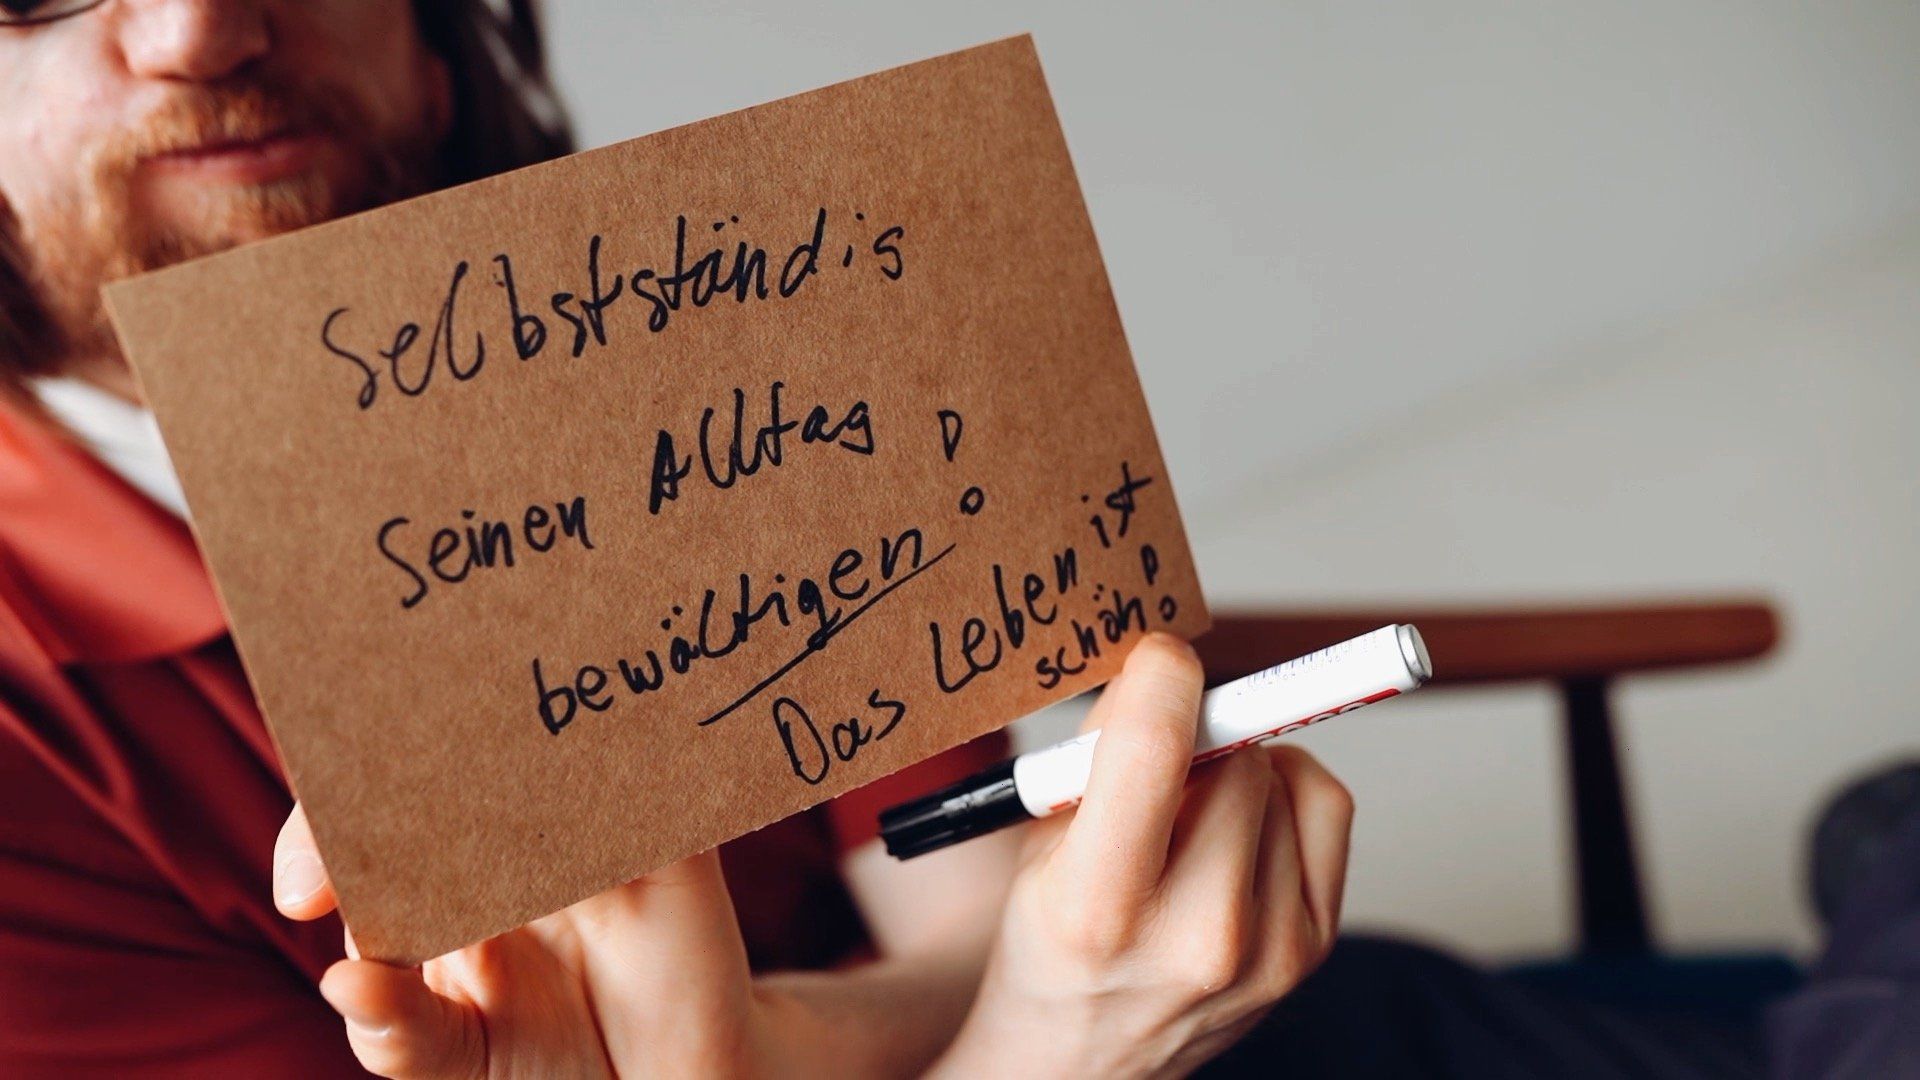 Selbstständig
Seinen Alltag
bewältigen!
Das Leben ist
schön!